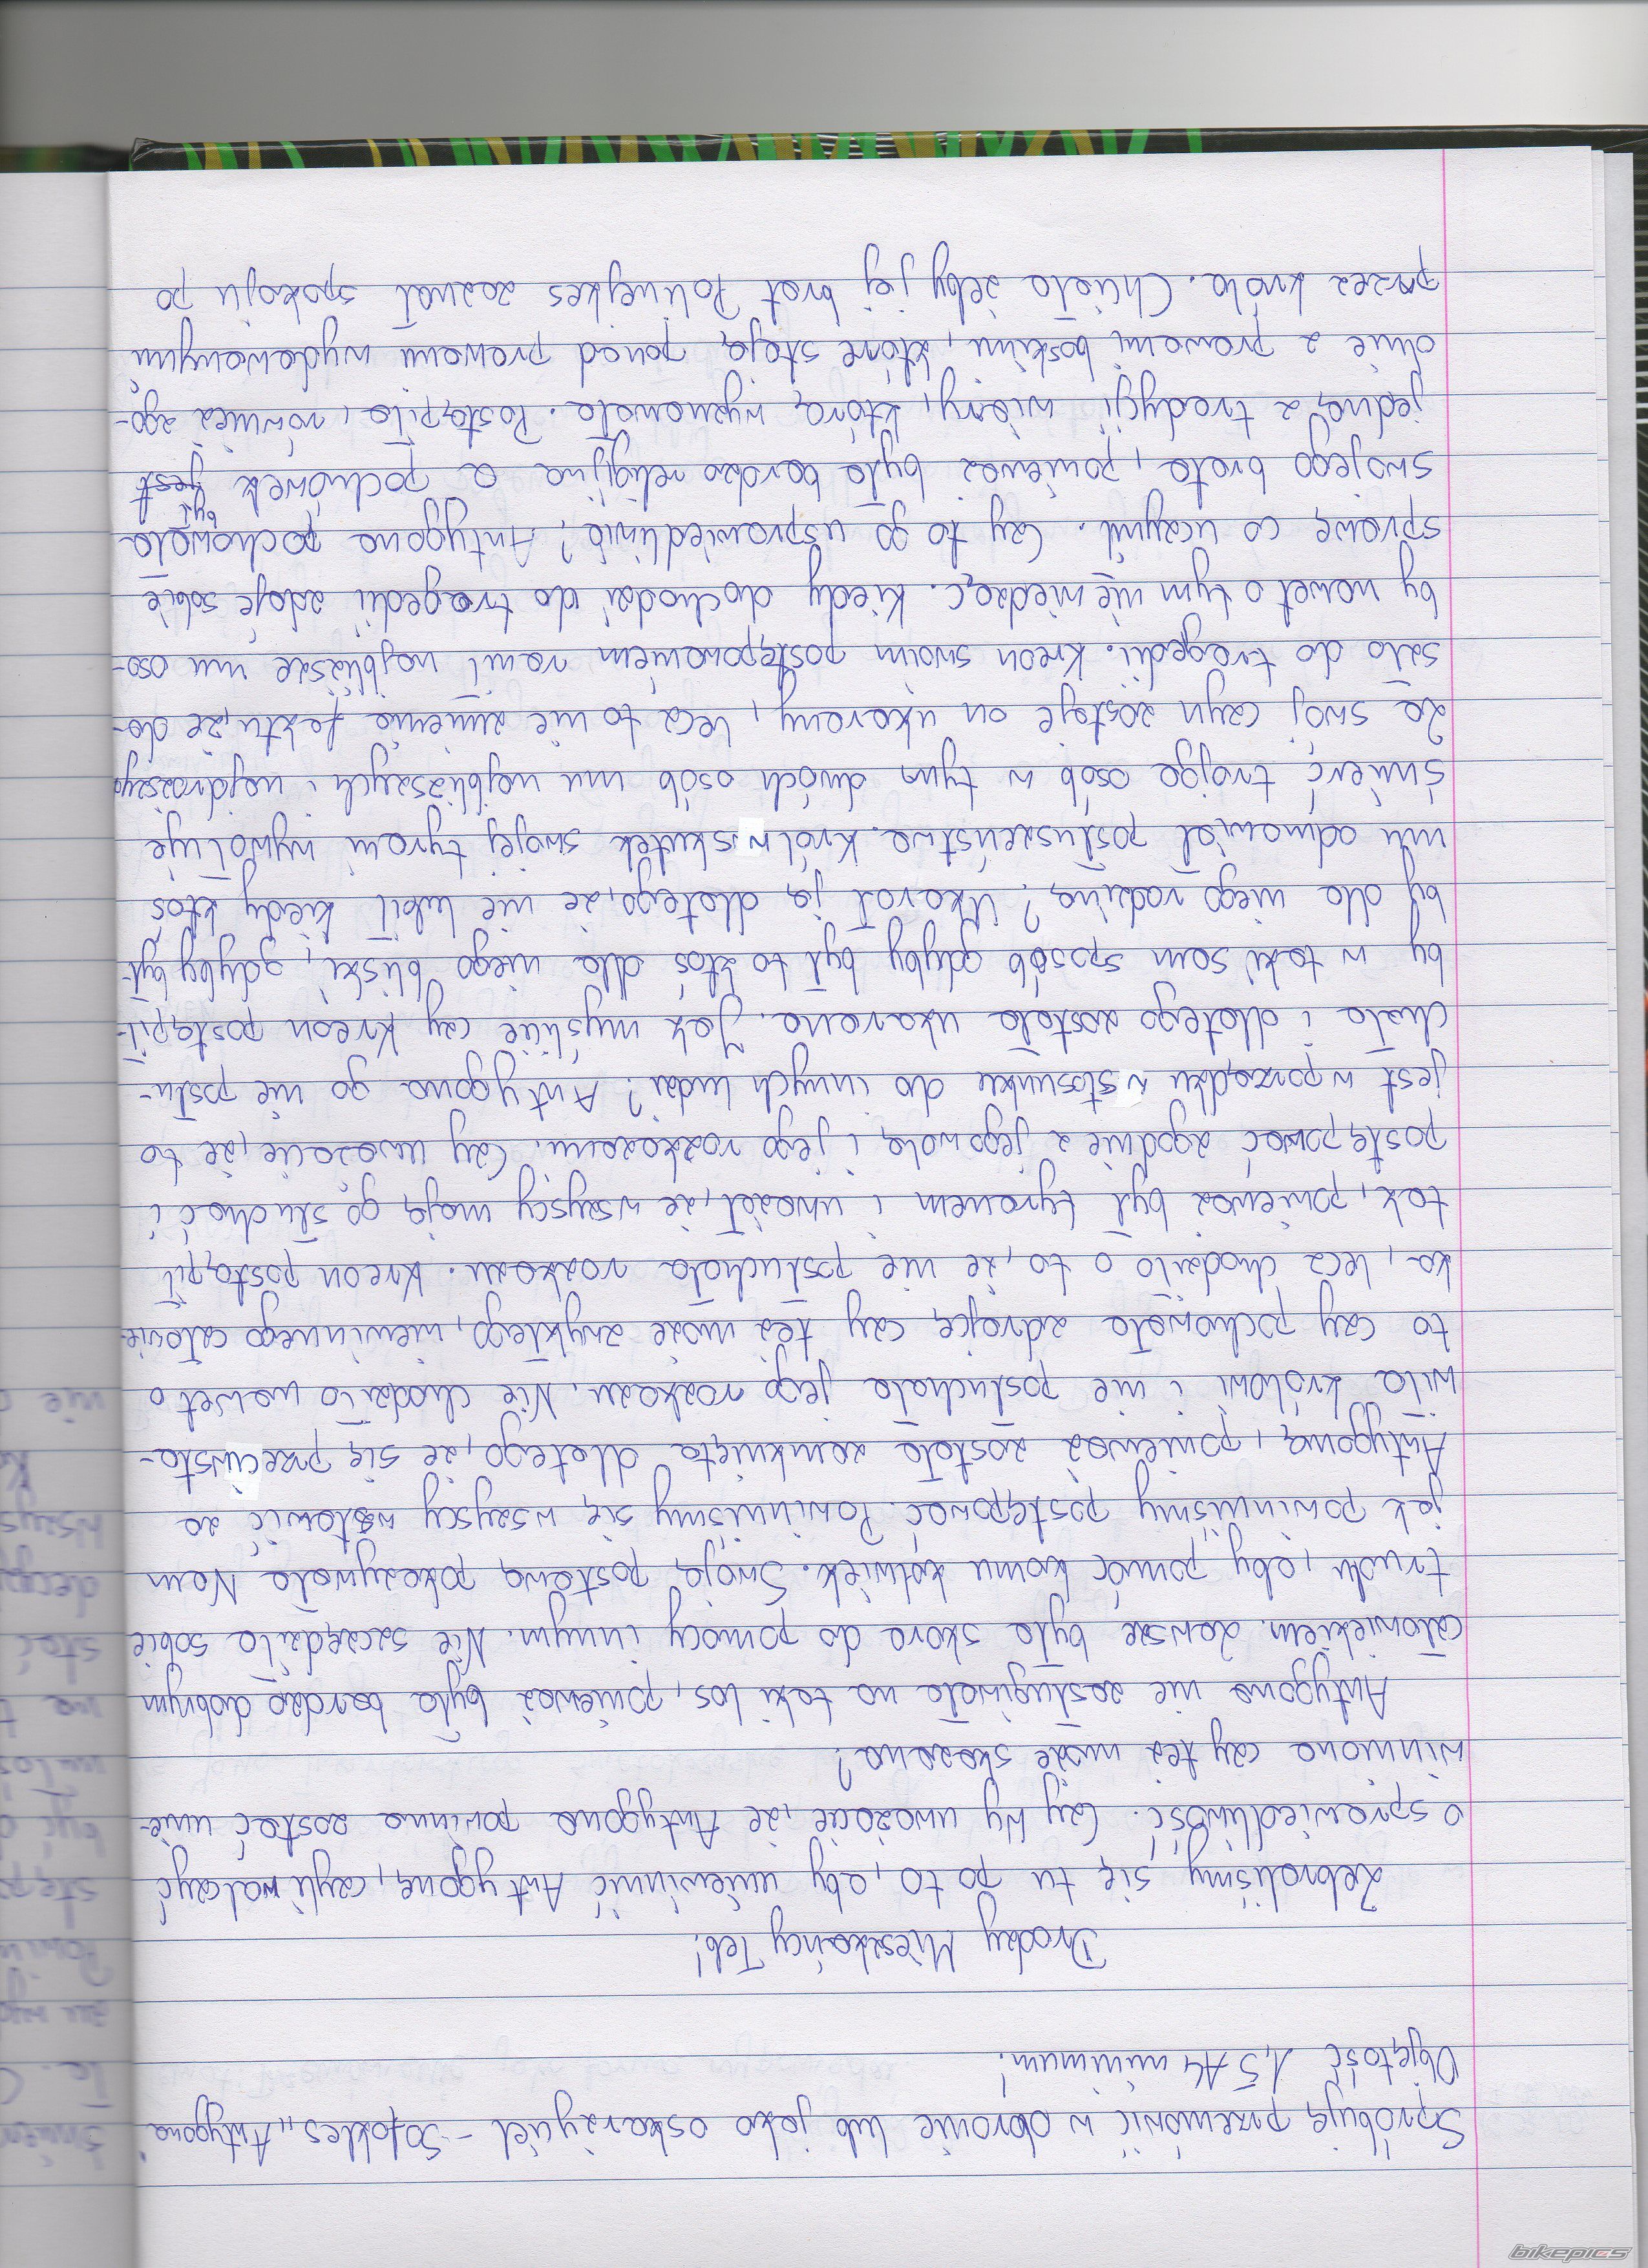 Spróbuję przemówić w obronie lub jako oskarżyciel - Sofokles „Antygona"
Objętość 1,5 A4 minimum!
Drodzy Mieszkańcy Teb!
Zebraliśmy się tu po to, aby uniewinnić Antygonę, czyli walczyć
o sprawiedliwość. Czy Wy uważacie, że Antygona powinna zostać unie-
winniona czy też może skazana?
Antygona nie zasługiwała na taki los, ponieważ była bardzo dobrym
człowiekiem. Zawsze była skora do pomocy innym. Nie szczędziła sobie
trudu, aby pomóc komu kolwiek. Swoją postawą pokazywała Nam
jak powinniśmy postępować. Powinniśmy się wszyscy wstawić za
Antygoną, ponieważ została zamknięta dlatego, że się przeciwsta-
wiła królowi i nie posłuchała jego rozkazu. Nie chodziło nawet o
to czy pochowała zdrajcę czy też może zwykłego, niewinnego człowie-
ka, lecz chodziło o to, że nie posłuchała rozkazu. Kreon postąpił
tak, ponieważ był tyranem i uważał, że wszyscy mają go słuchać i
postępować zgodnie z jego wolą i jego rozkazami. Czy uważacie, że to
jest w porządku w stosunku do innych ludzi? Antygona go nie posłu-
chała i dlatego została ukarana. Jak myślicie czy Kreon postąpił-
by w taki sam sposób gdyby był to ktoś dla niego bliski, gdyby był-
by dla niego rodziną? Ukarał ją dlatego, że nie lubił kiedy ktoś
mu odmawiał posłuszeństwa. Król w skutek swojej tyrani wywołuje
śmierć trojga osób w tym dwóch osób mu najbliższych i najdroższych
Za swój czyn zostaje on ukarany, lecz to nie zmienia faktu, że do-
szło do tragedii. Kreon swoim postępowaniem ranił najbliższe mu oso-
by nawet o tym nie wiedząc. Kiedy dochodzi do tragedii zdaje sobie
sprawę co uczynił. Czy to go usprawiedliwia? Antygona pochowała
swojego brata, ponieważ była bardzo religijna a pochówek jest był
jedną z tradycji wiary, którą wyznawała. Postąpiła, również zgo-
dnie z prawami boskimi, które stoją ponad prawem wydawanym
przez króla. Chciała żeby jej brat Polinejkes zaznał spokoju po
bikepics